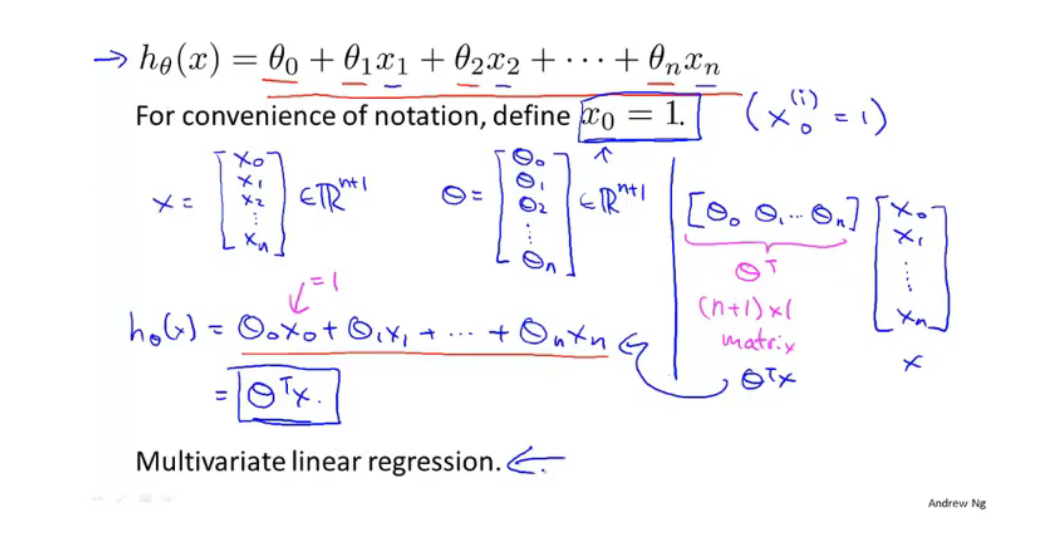 → hθ(x) = θ₀ + θ₁x₁ + θ₂x₂ + ⋯ + θₙxₙ
For convenience of notation, define x₀ = 1. (x₀⁽ⁱ⁾ = 1)
x = [x₀ x₁ x₂ ⋮ xₙ] ∈ ℝⁿ⁺¹ θ = [θ₀ θ₁ θ₂ ⋮ θₙ] ∈ ℝⁿ⁺¹
[θ₀ θ₁ ⋯ θₙ] [x₀ x₁ ⋮ xₙ]
θᵀ
(n+1)×1
matrix
x
θᵀx
=1
hθ(x) = θ₀x₀ + θ₁x₁ + ⋯ + θₙxₙ
= θᵀx.
Multivariate linear regression. ←
Andrew Ng